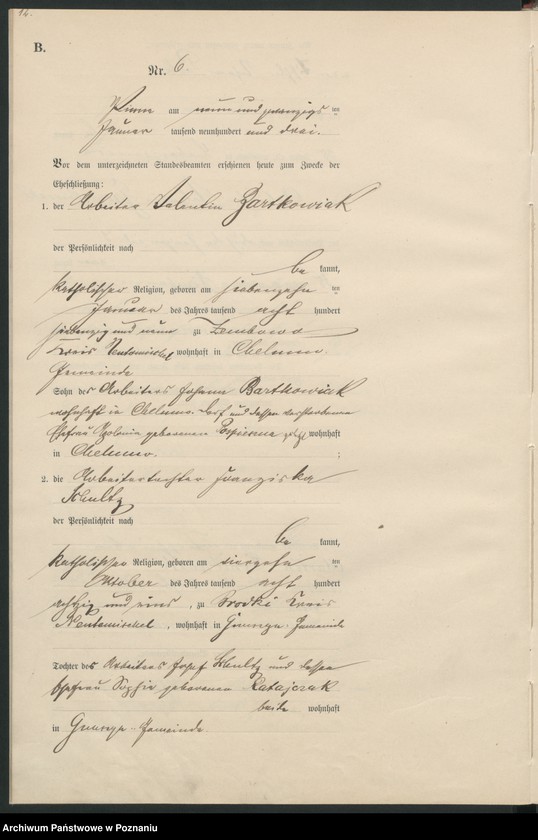 B.
Nr. 6
am neun und zwanzigsten
Januar tausend neunhundert und drei.
Vor dem unterzeichneten Standesbeamten erschienen heute zum Zwecke der
Eheschließung:
1. der Arbeiter Valentin Bartkowiak
der Persönlichkeit nach
be kannt,
katholischer Religion, geboren am siebenzehn ten
Januar des Jahres tausend acht hundert
siebenzig und neun zu Zembowo
Kreis Neutomischel wohnhaft in Chelmno
Gemeinde
Sohn des Arbeiters Johann Bartkowiak
wohnhaft in Chelmno Dorf und dessen verstorbenen
Ehefrau Apolonia geborenen wohnhaft
in Chelmno. ;
2. die Arbeitertochter Franziska
Schultz
der Persönlichkeit nach
be kannt,
katholischer Religion, geboren am vierzehn ten
Oktober des Jahres tausend acht hundert
achtzig und eins, zu Brodki Kreis
Neutomischel, wohnhaft in Gemeinde
Tochter des Arbeiters Josef Schultz und dessen
Ehefrau Sophie geborenen Ratajczak
beide wohnhaft
in Gemeinde
Archiwum Państwowe w Poznaniu